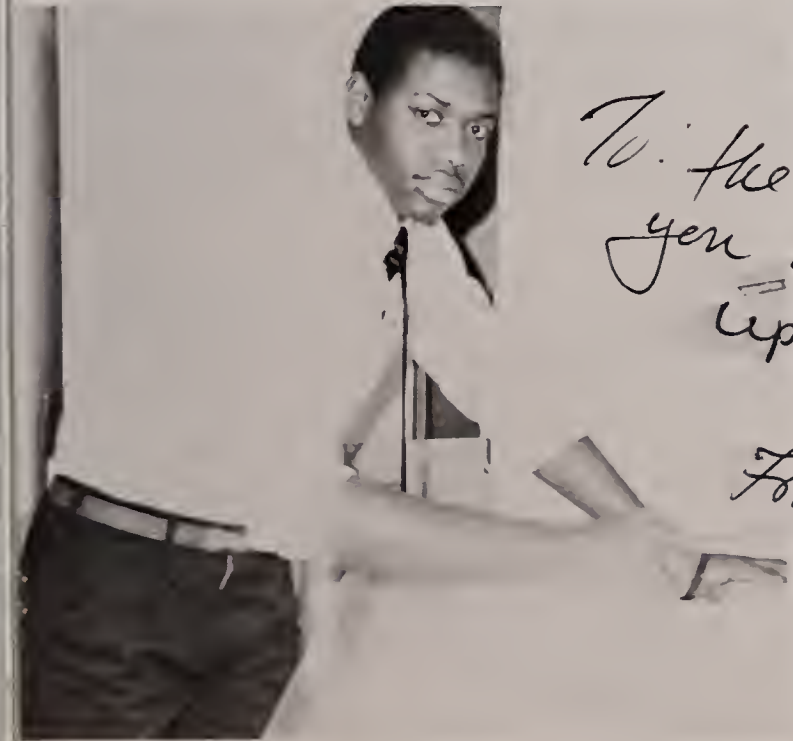 To: the
you
up